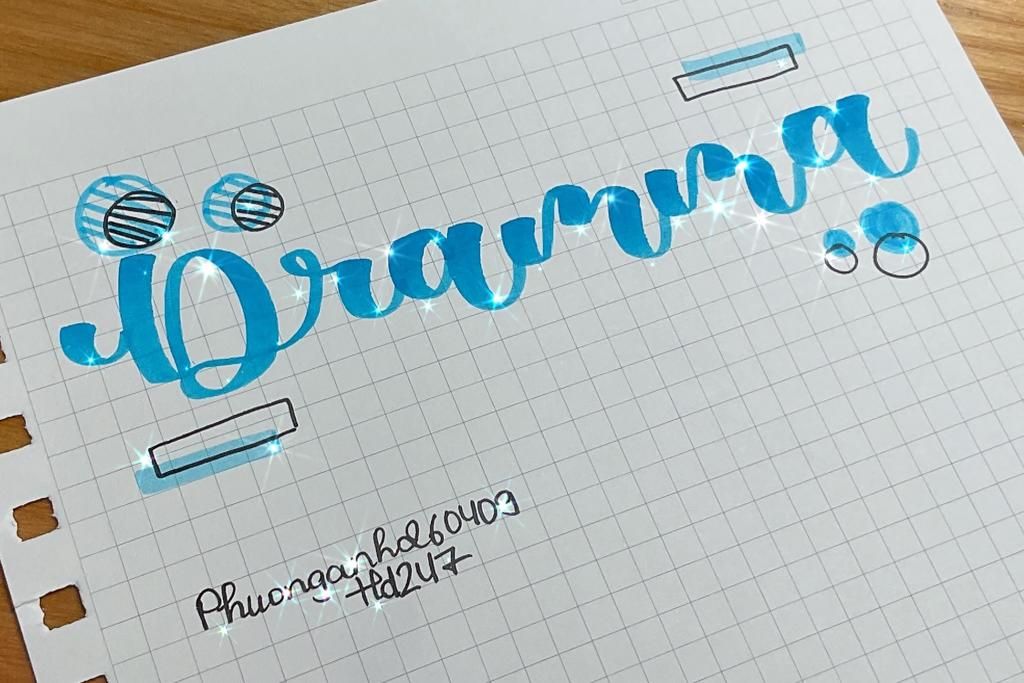 Dramma
Phuonganhd260409
Hd247